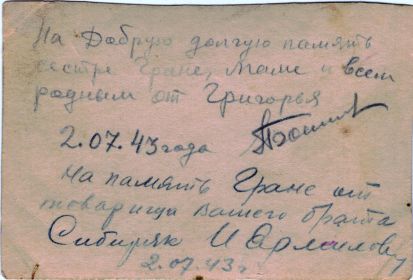 На Добрую долгую память
сестре Гране, Маме и всем
родным от Григорья
2.07.43 года
На память Гране от
товарища вашего брата
Сибиряк И
2.07.43 г